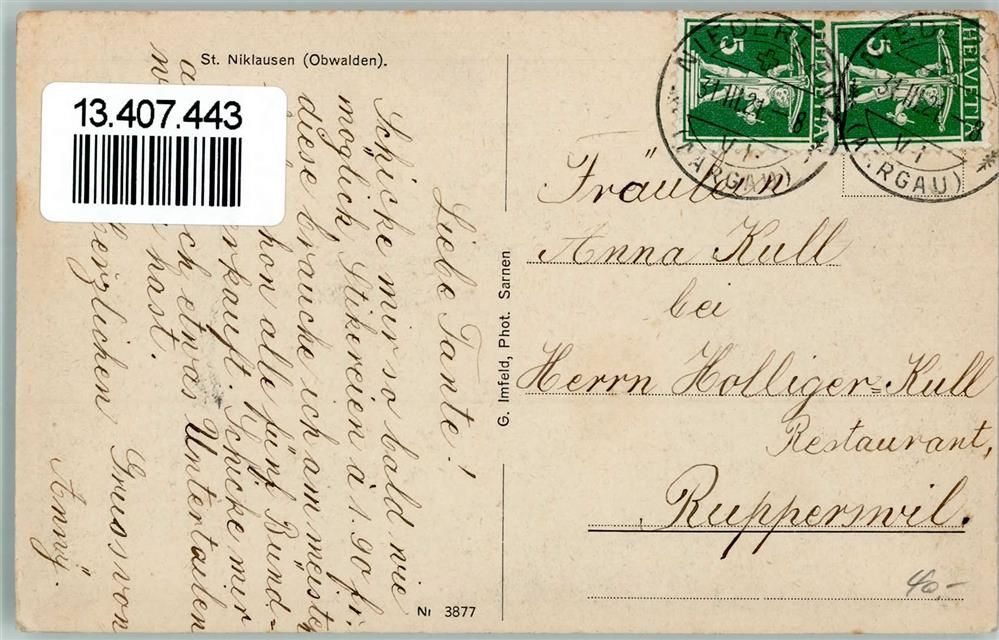 St. Niklausen (Obwalden).
13.407.443
Liebe Tante!
Schicke mir so bald wie
möglich, Stikereien á 1.90 fr.
diese brauche ich am meisten
hon alle fünf Bünd-
rkauft. Schicke mir
ch etwas Untertailen
hast.
herzlichen Gruss von
Anny.
G. Imfeld, Phot. Sarnen
Nr 3877
5 HELVETIA
5 HELVETIA
NIEDER
31.III.21.-8
VI.
(AARGAU)
NIEDER
31.III.21.-8
VI.
(AARGAU)
Fräulein
Anna Kull
bei
Herrn Holliger-Kull
Restaurant,
Rupperswil.
40,-